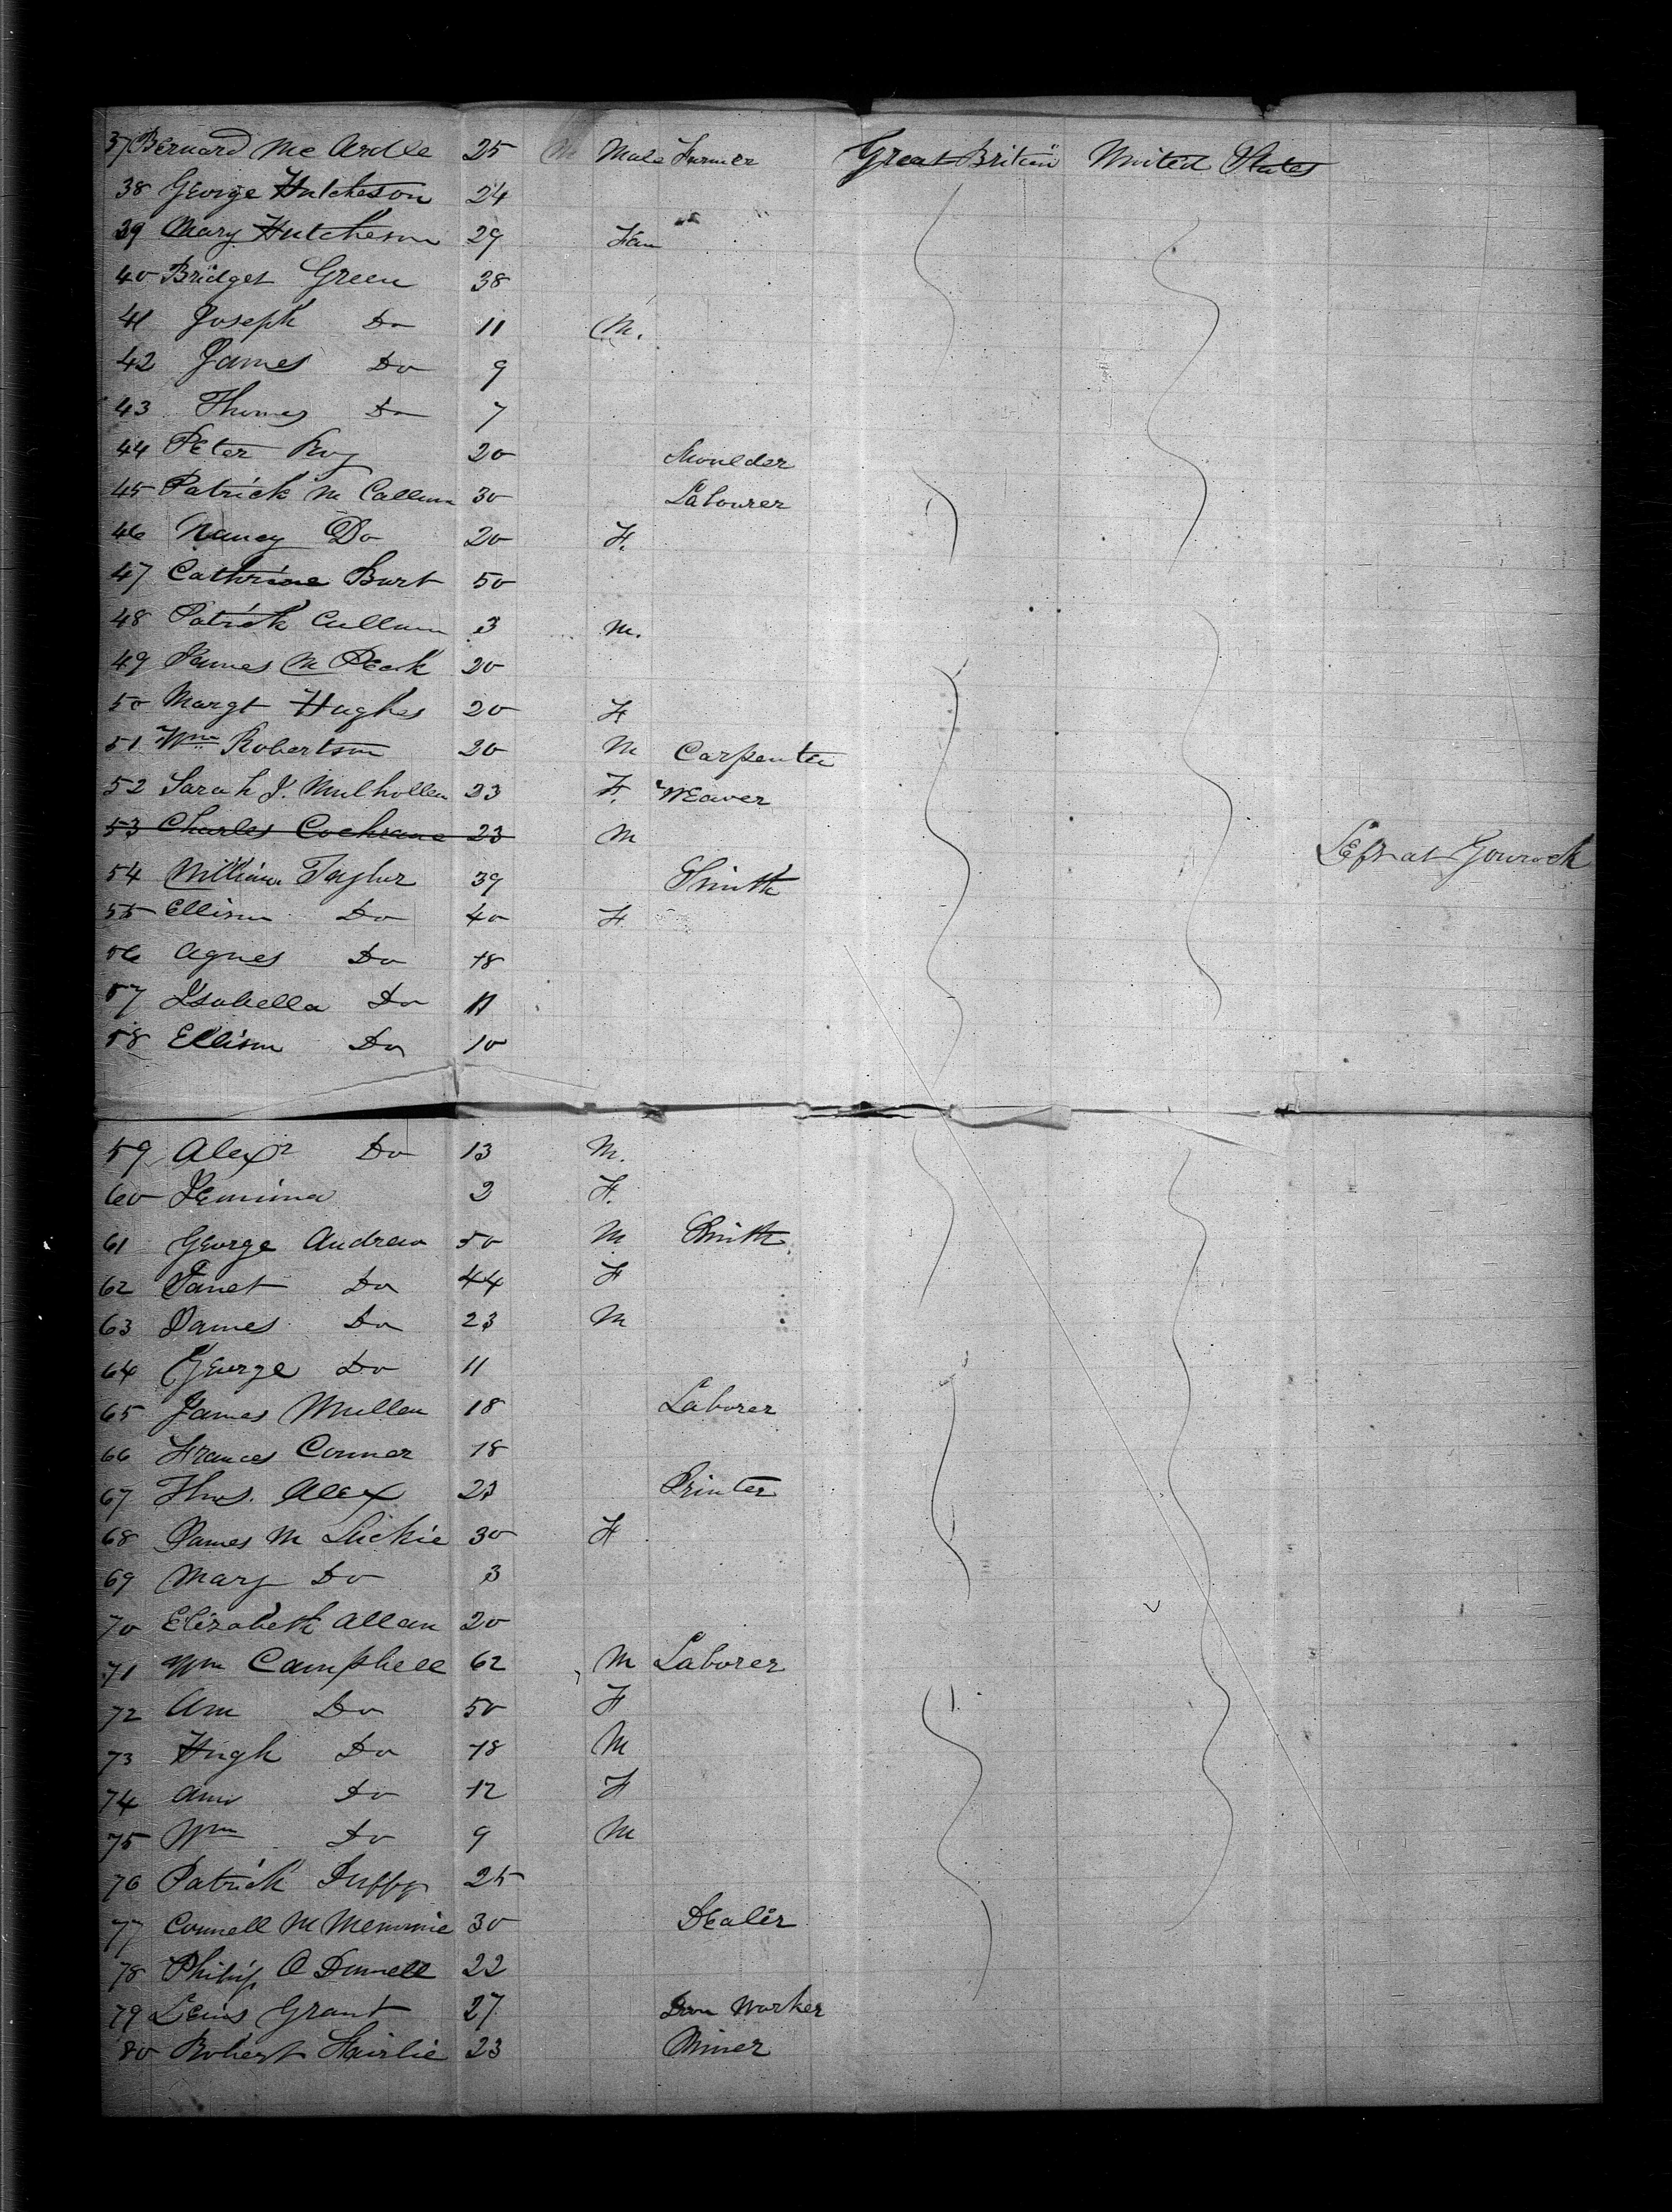 37 Bernard Mc Ardle 25 Male Farmer Great Britain United States
38 George Hutcheson 24
39 Mary Hutcheson 29 Fem
40 Bridget Green 38
41 Joseph Do 11 M.
42 James Do 9
43 Thomas Do 7
44 Peter Roy 20 Moulder
45 Patrick M Callum 30 Labourer
46 Nancy Do 20 F.
47 Cathrine Burt 50
48 Patrick Cullum 3 M.
49 James M Peak 20
50 Margt Hughes 20 F
51 Wm Robertson 20 M Carpenter
52 Sarah J. Mulhollen 23 F. Weaver
53 Charles Cochrane 23 M Left at Gourock
54 William Taylor 39 Smith
55 Ellison Do 40 F
56 Agnes Do 18
57 Isabella Do 11
58 Ellison Do 10
59 Alexr Do 13 M.
60 Jemima 2 F.
61 George Andrew 50 M Smith
62 Janet Do 44 F
63 James Do 23 M
64 George Do 11
65 James Mullen 18 Laborer
66 Frances Conner 18
67 Thos. Alex 23 Printer
68 James M Luckie 30 F
69 Mary Do 3
70 Elizabeth Allan 20
71 Wm Campbell 62 M Laborer
72 Ann Do 50 F
73 Hugh Do 18 M
74 Ann Do 12 F
75 Wm Do 9 M
76 Patrick Duffy 25
77 Connell M Menomie 30 Dealer
78 Philip O Donnell 22
79 Lewis Grant 27 Iron Worker
80 Robert Fairlie 23 Miner